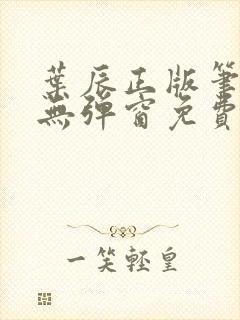 葉辰正版筆
無彈窗免費
一笑輕皇